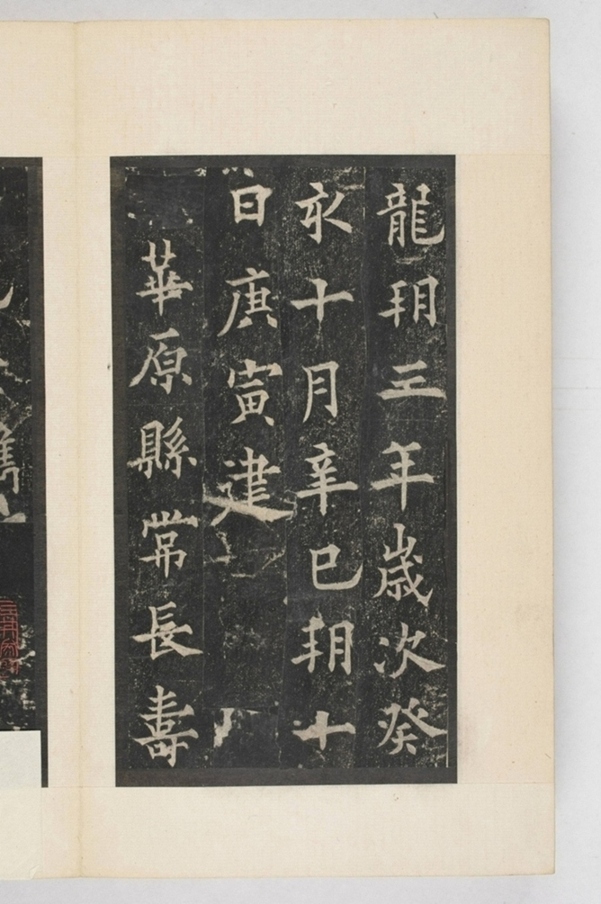 龍朔三年歲次癸
亥十月辛巳朔十
日庚寅建
華原縣常長壽